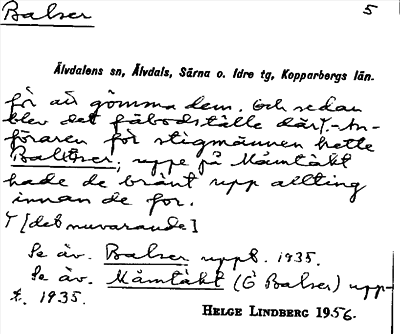 Balser 5
Älvdalens sn, Älvdals, Särna o. Idre tg, Kopparbergs län.
för att gömma dem. Och sedan
blev det fäbodställe därᵞ. - An-
föraren för stigmännen hette
Baltser; uppe på Måmtäkt
hade de bränt upp allting
innan de for.
ᵞ [det nuvarande]
Se äv. Balser uppt. 1935.
Se äv. Måmtäkt (Ö Balser) upp-
t. 1935.
HELGE LINDBERG 1956.